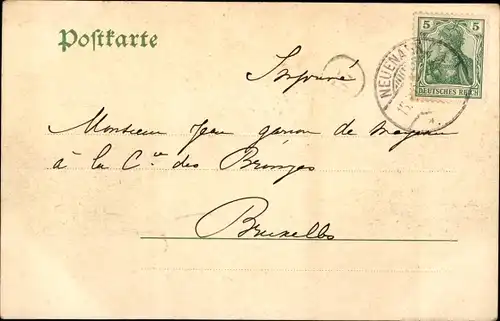 Postkarte
5 5
DEUTSCHES REICH
NEUENA
Imprimé
Monsieur Jean garson de
à la Cie des Bronzes
Bruxelles